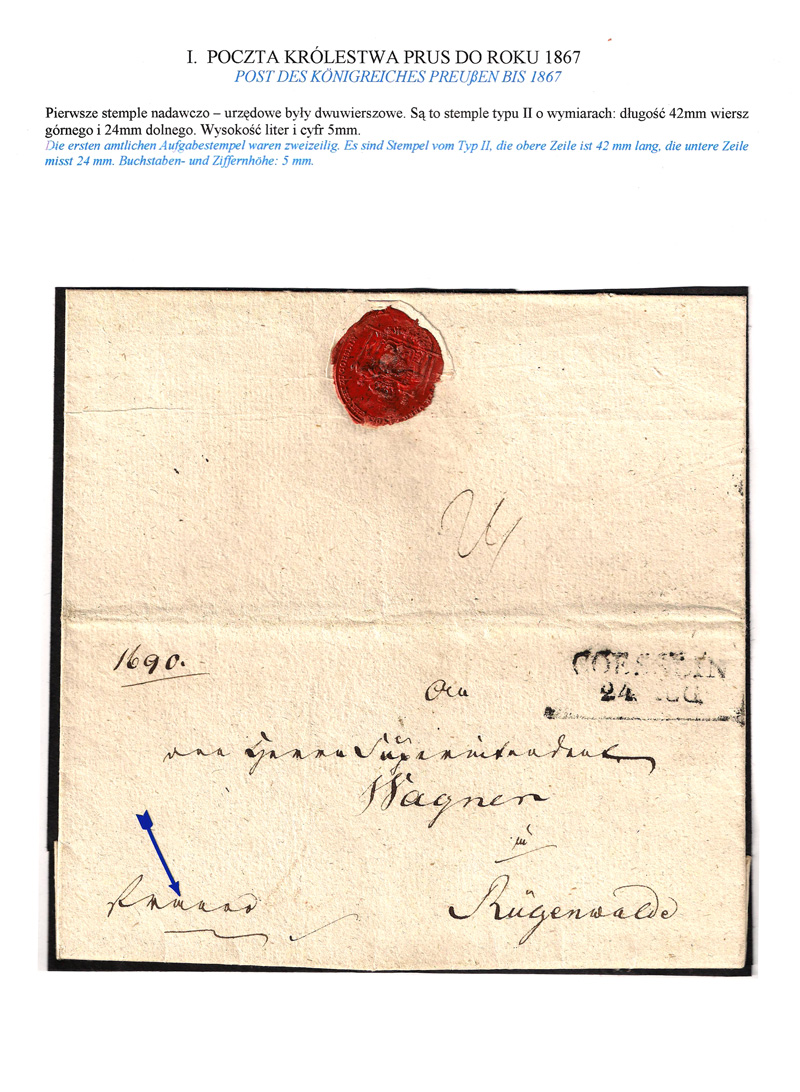 I. POCZTA KRÓLESTWA PRUS DO ROKU 1867
POST DES KÖNIGREICHES PREUßEN BIS 1867
Pierwsze stemple nadawczo – urzędowe były dwuwierszowe. Są to stemple typu II o wymiarach: długość 42mm wiersz
górnego i 24mm dolnego. Wysokość liter i cyfr 5mm.
Die ersten amtlichen Aufgabestempel waren zweizeilig. Es sind Stempel vom Typ II, die obere Zeile ist 42 mm lang, die untere Zeile
misst 24 mm. Buchstaben- und Ziffernhöhe: 5 mm.
1690.
COESSLIN
24
An
den Herrn Superintendent
Wagner
in
Rügenwalde